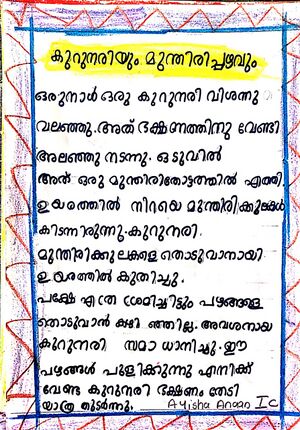 കുറുനരിയും മുന്തിരിപ്പഴവും
ഒരുനാൾ ഒരു കുറുനരി വിശന്നു
വലഞ്ഞു. അത് ഭക്ഷണത്തിനു വേണ്ടി
അലഞ്ഞു നടന്നു. ഒടുവിൽ
അത് ഒരു മുന്തിരിതോട്ടത്തിൽ എത്തി.
ഉയരത്തിൽ നിറയെ മുന്തിരിക്കുലകൾ
കിടന്നിരുന്നു. കുറുനരി.
മുന്തിരിക്കുലകളെ തൊടുവാനായി
ഉയരത്തിൽ കുതിച്ചു.
പക്ഷേ എത്ര ശ്രമിച്ചിട്ടും പഴങ്ങളെ
തൊടുവാൻ കഴി ഞ്ഞില്ല. അവശനായ
കുറുനരി സമാ ധാനിച്ചു. ഈ
പഴങ്ങൾ പുളിക്കുന്നു എനിക്ക്
വേണ്ട കുറുനരി ഭക്ഷണം തേടി
യാത്ര തുടർന്നു. Ayisha Anaan I C